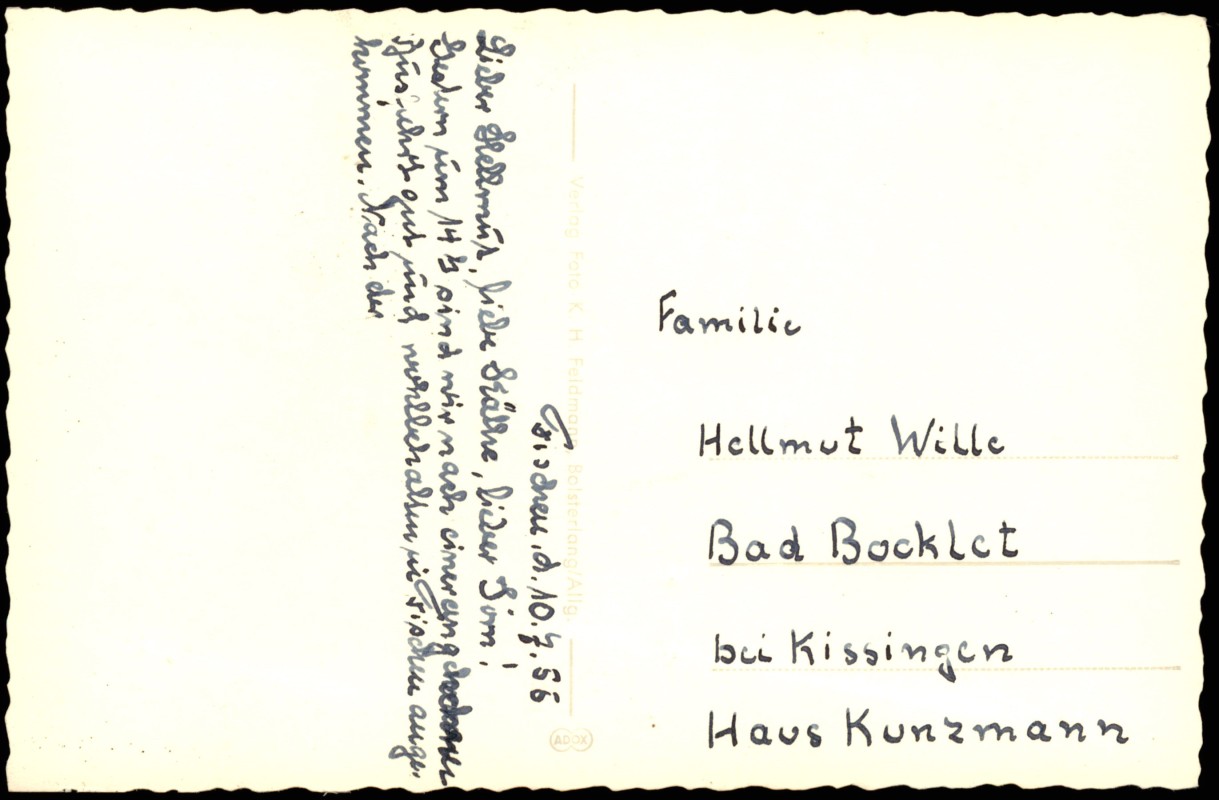 Fischen, d. 10.7.56
Lieber Hellmut, liebe Käthe, lieber
Gestern um 14 h sind wir nach einer
Zugfahrt gut und wohlbehalten in Fischen ange-
kommen. Nach der
Verlag Foto K. H. Feldmann, Bolsterlang/Allg.
ADOX
Familie
Hellmut Wille
Bad Bocklet
bei Kissingen
Haus Kunzmann